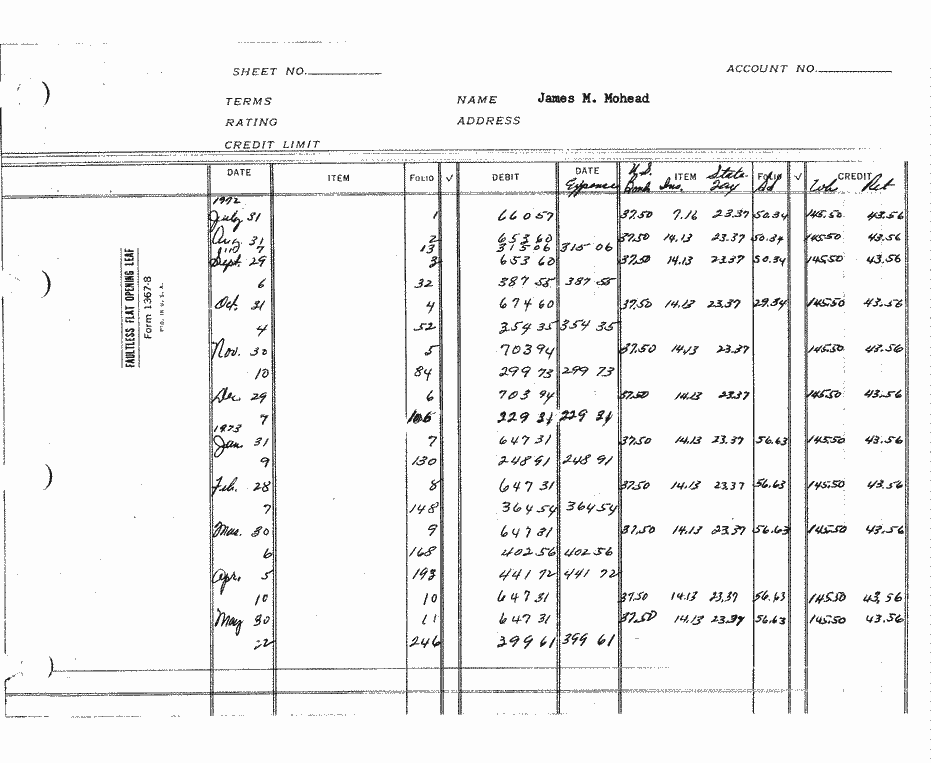 SHEET NO. ACCOUNT NO.
TERMS NAME James M. Mohead
RATING ADDRESS
CREDIT LIMIT
DATE ITEM FOLIO √ DEBIT DATE Expense U.S. Bank ITEM Ins. State Tax FOLIO Ad √ CREDIT Wh. Ret
1972
July 31 1 660 57 37.50 7.16 23.37 50.34 145.50 43.56
Aug 31 2 653 60 37.50 14.13 23.37 50.34 145.50 43.56
7 13 315 06 315 06
Sept. 29 3 653 60 37.50 14.13 23.37 50.34 145.50 43.56
6 32 387 55 387 55
Oct. 31 4 674 60 37.50 14.13 23.37 29.34 145.50 43.56
4 52 354 35 354 35
Nov. 30 5 703 94 37.50 14.13 23.37 145.50 43.56
10 84 299 73 299 73
Dec. 29 6 703 94 37.50 14.13 23.37 145.50 43.56
7 106 229 31 229 31
1973
Jan. 31 7 647 31 37.50 14.13 23.37 56.63 145.50 43.56
9 130 248 91 248 91
Feb. 28 8 647 31 37.50 14.13 23.37 56.63 145.50 43.56
7 148 364 54 364 54
Mar. 30 9 647 31 37.50 14.13 23.37 56.63 145.50 43.56
6 168 402 56 402 56
Apr. 5 193 441 72 441 72
10 10 647 31 37.50 14.13 23.37 56.63 145.50 43.56
May 30 11 647 31 37.50 14.13 23.37 56.63 145.50 43.56
22 246 399 61 399 61
FAULTLESS FLAT OPENING LEAF
Form 1367-8
PTD. IN U.S.A.